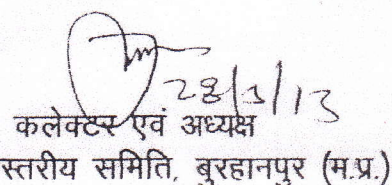 28/1/13
कलेक्टर एवं अध्यक्ष
स्तरीय समिति, बुरहानपुर (म.प्र.)